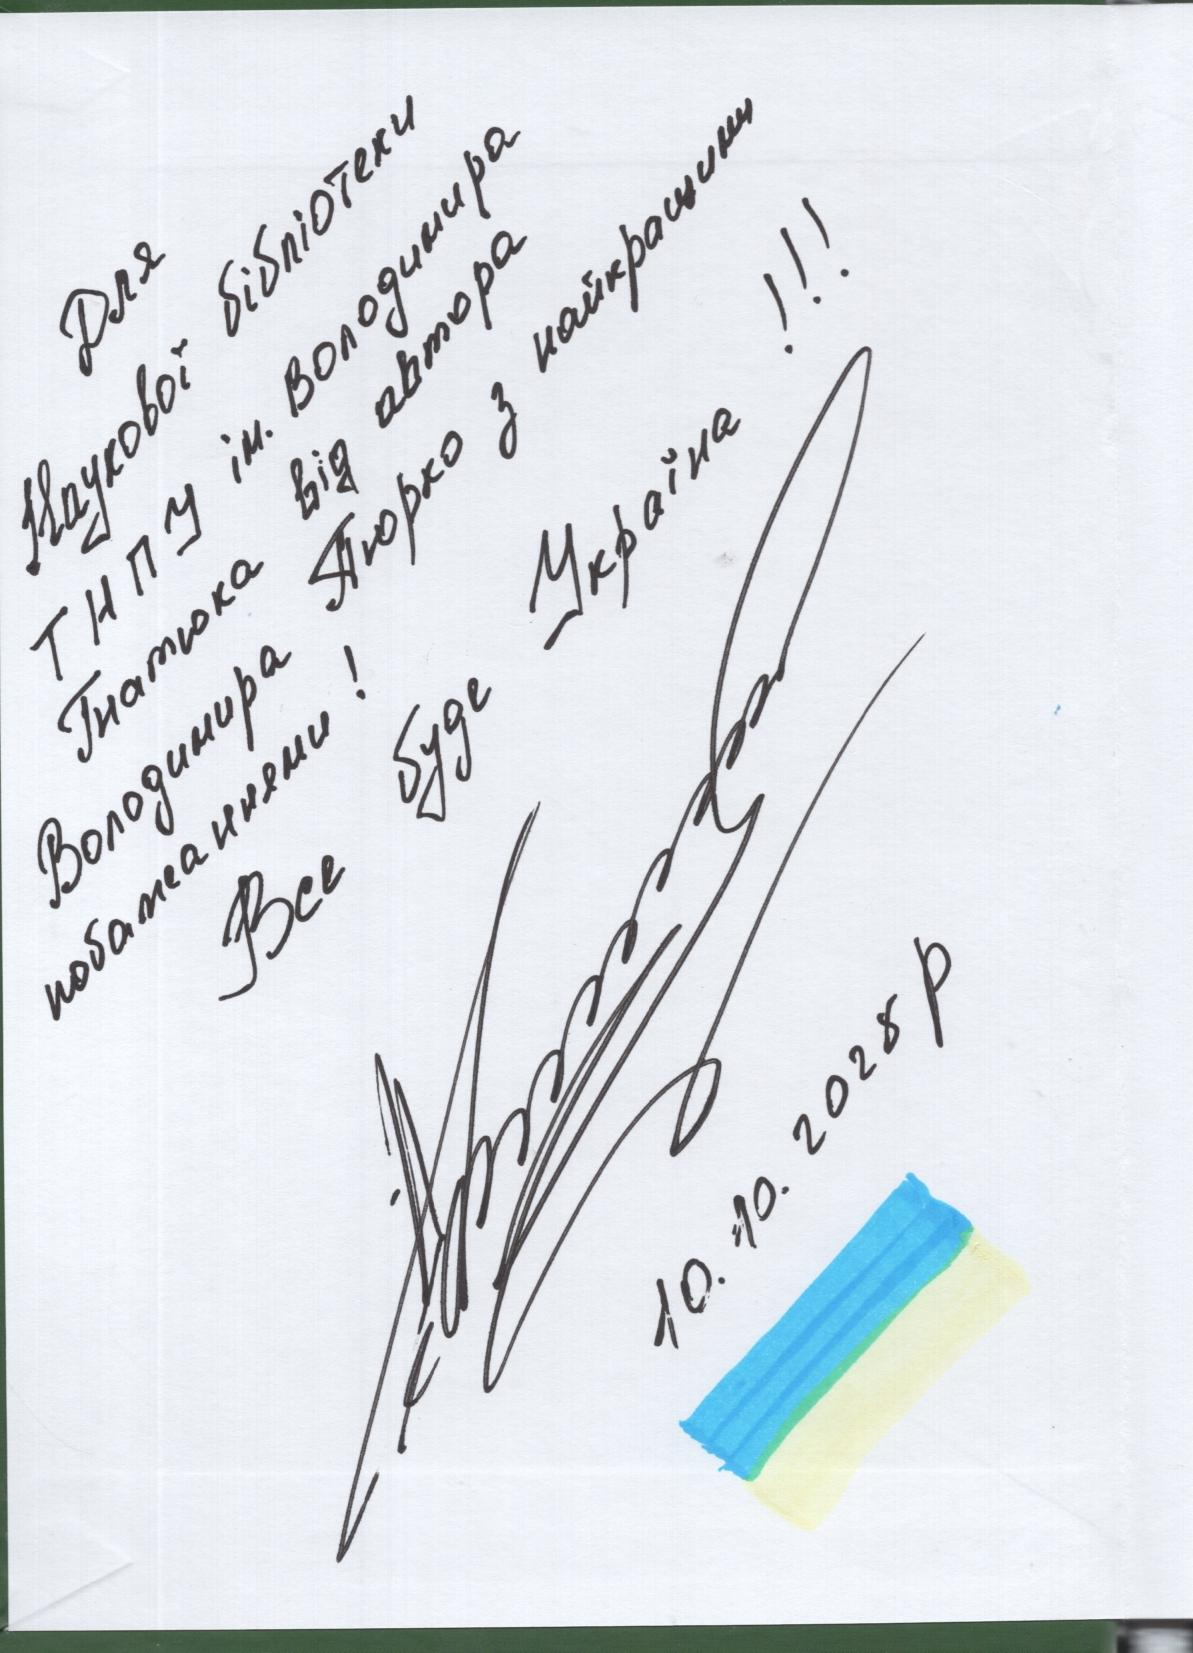 Для
Наукової бібліотеки
ТНПУ ім. Володимира
Гнатюка від автора
Володимира з найкращими
побажаннями!
Все буде Україна!!!
10.10.2025 р